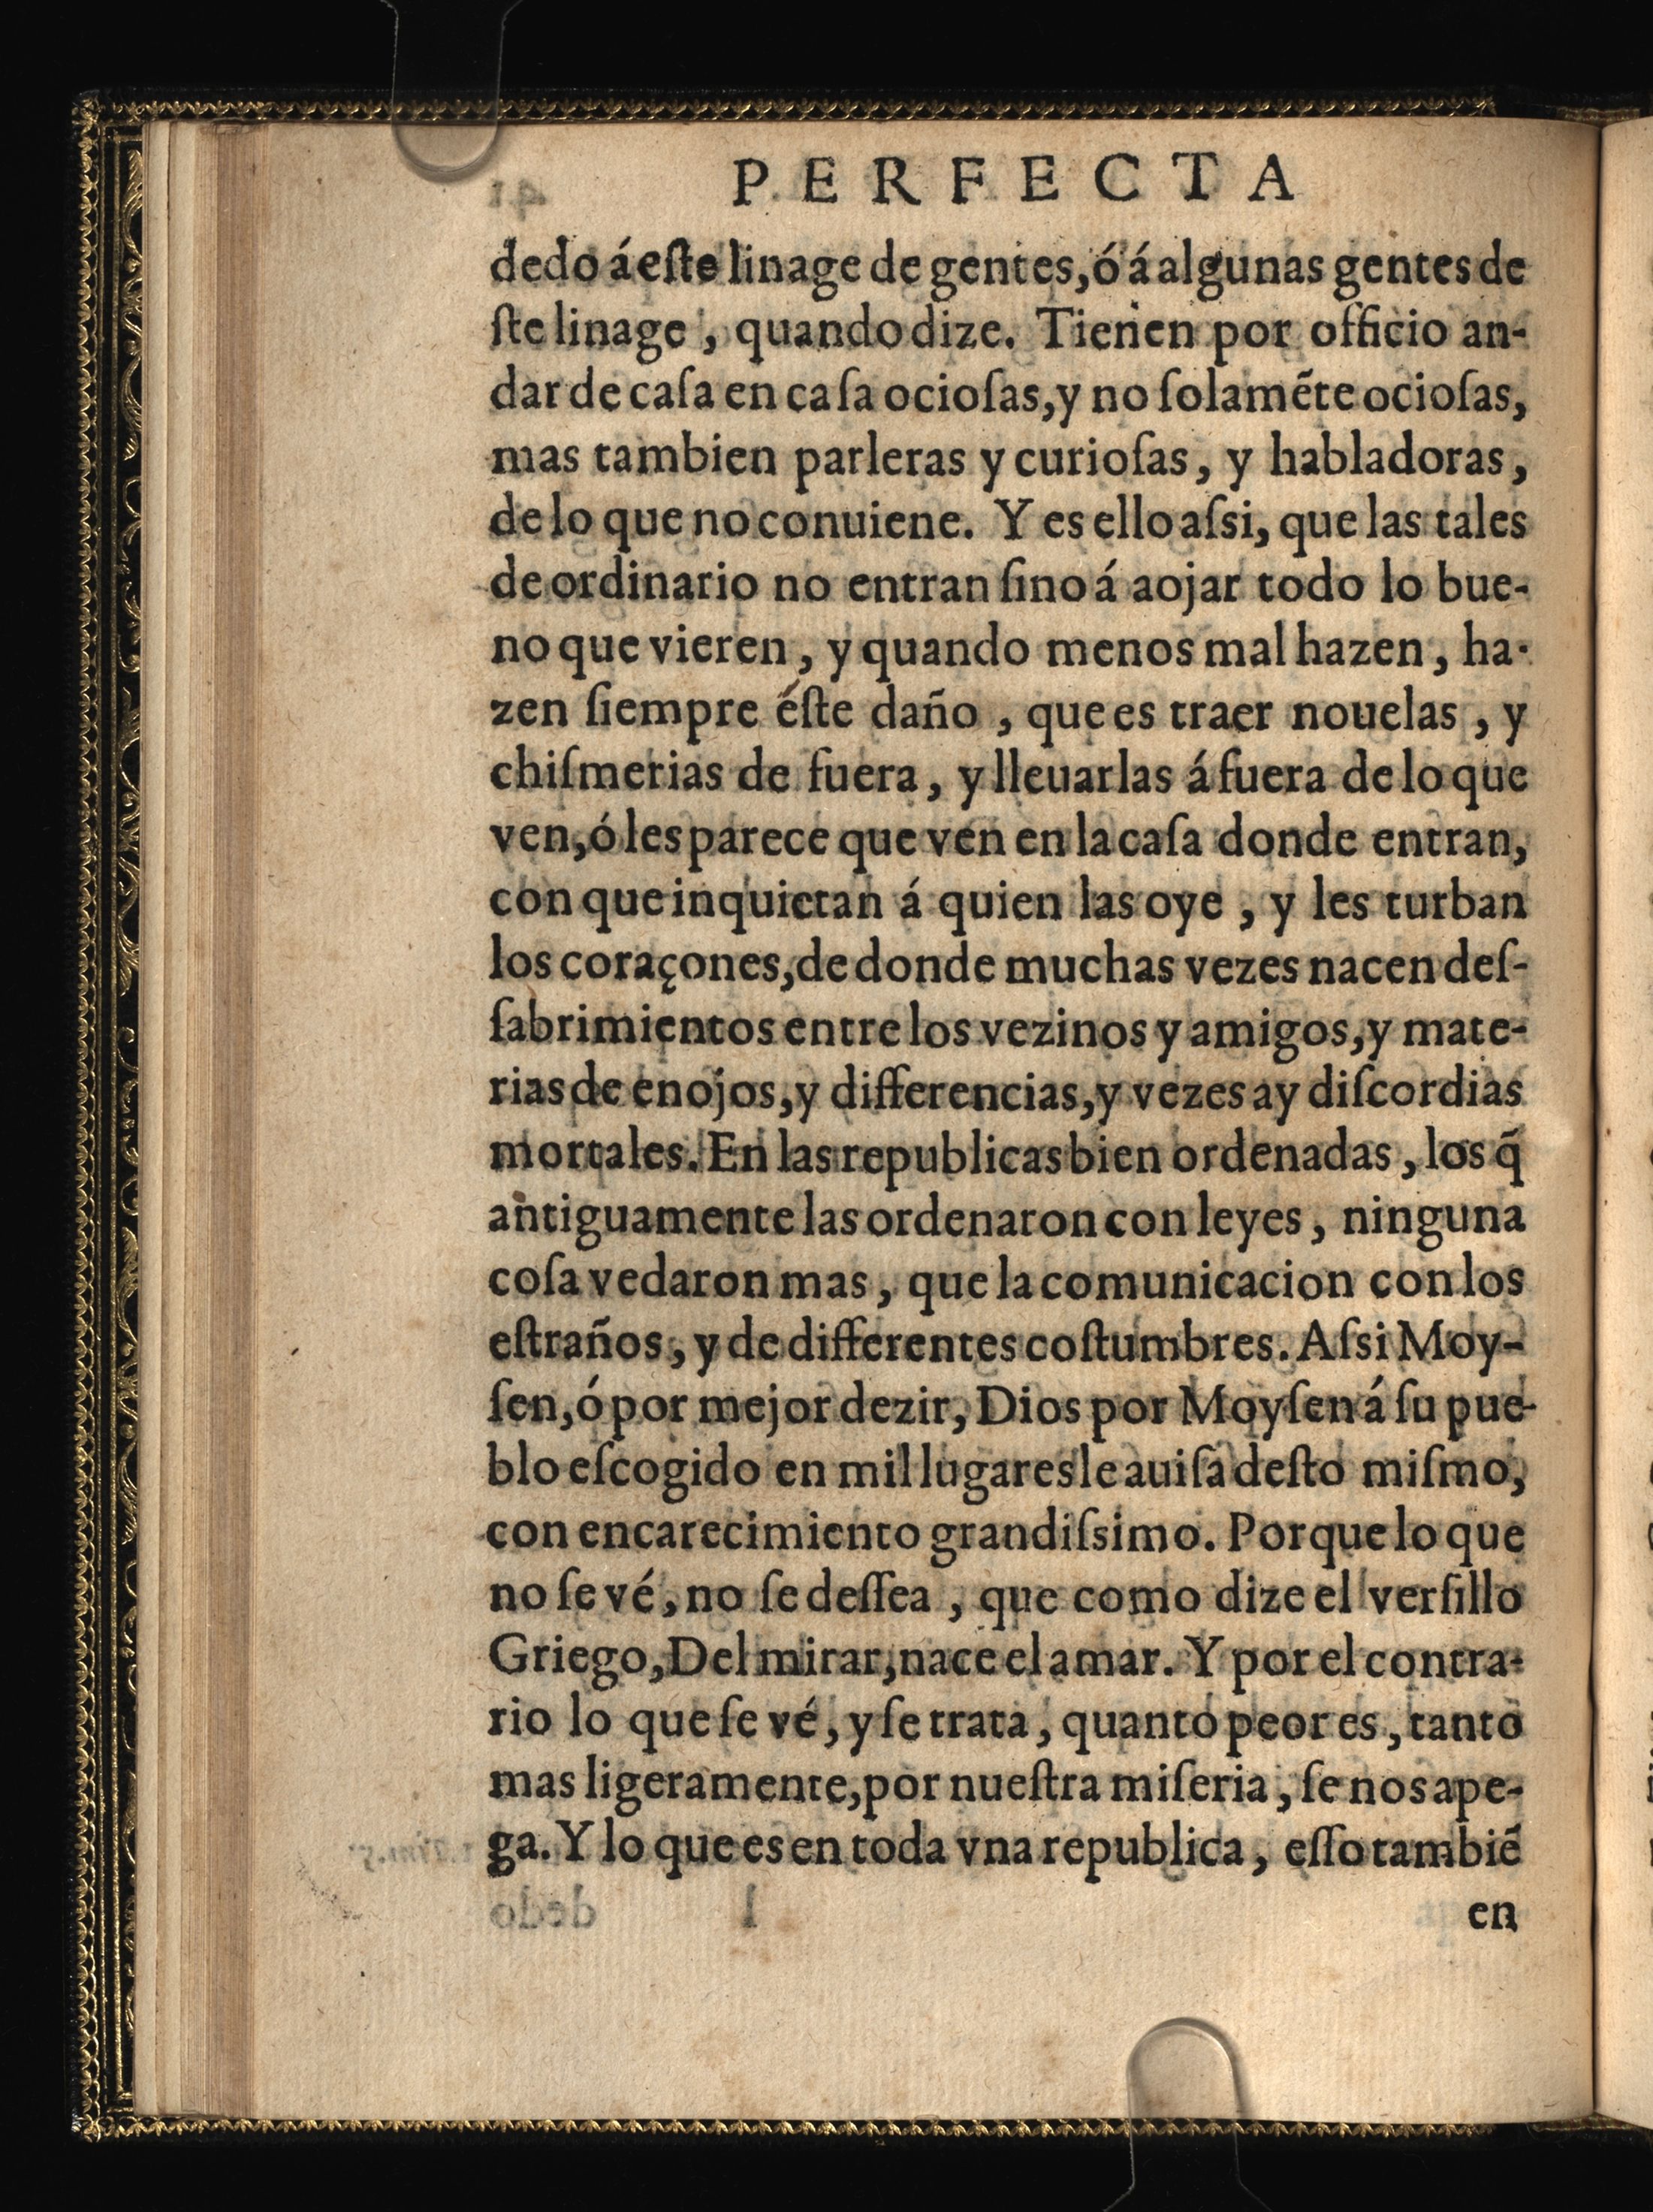 PERFECTA
dedo á eſte linage de gentes, ó á algunas gentes de
ſte linage, quando dize. Tienen por officio an-
dar de caſa en caſa ocioſas, y no ſolamẽte ocioſas,
mas tambien parleras y curioſas, y habladoras,
de lo que no conuiene. Y es ello aſsi, que las tales
de ordinario no entran ſino á aojar todo lo bue-
no que vieren, y quando menos mal hazen, ha-
zen ſiempre éſte daño, que es traer nouelas, y
chiſmerias de fuera, y lleuarlas á fuera de lo que
ven, ó les parece que ven en la caſa donde entran,
con que inquietan á quien las oye, y les turban
los coraçones, de donde muchas vezes nacen deſ-
ſabrimientos entre los vezinos y amigos, y mate-
rias de enojos, y differencias, y vezes ay diſcordias
mortales. En las republicas bien ordenadas, los q̃
antiguamente las ordenaron con leyes, ninguna
coſa vedaron mas, que la comunicacion con los
eſtraños, y de differentes coſtumbres. Aſsi Moy-
ſen, ó por mejor dezir, Dios por Moyſen á ſu pue-
blo eſcogido en mil lugares le auiſa deſto miſmo,
con encarecimiento grandiſsimo. Porque lo que
no ſe vé, no ſe deſſea, que como dize el verſillo
Griego, Del mirar, nace el amar. Y por el contra-
rio lo que ſe vé, y ſe trata, quanto peor es, tanto
mas ligeramente, por nueſtra miſeria, ſe nos ape-
ga. Y lo que es en toda vna republica, eſſo tambiẽ
en